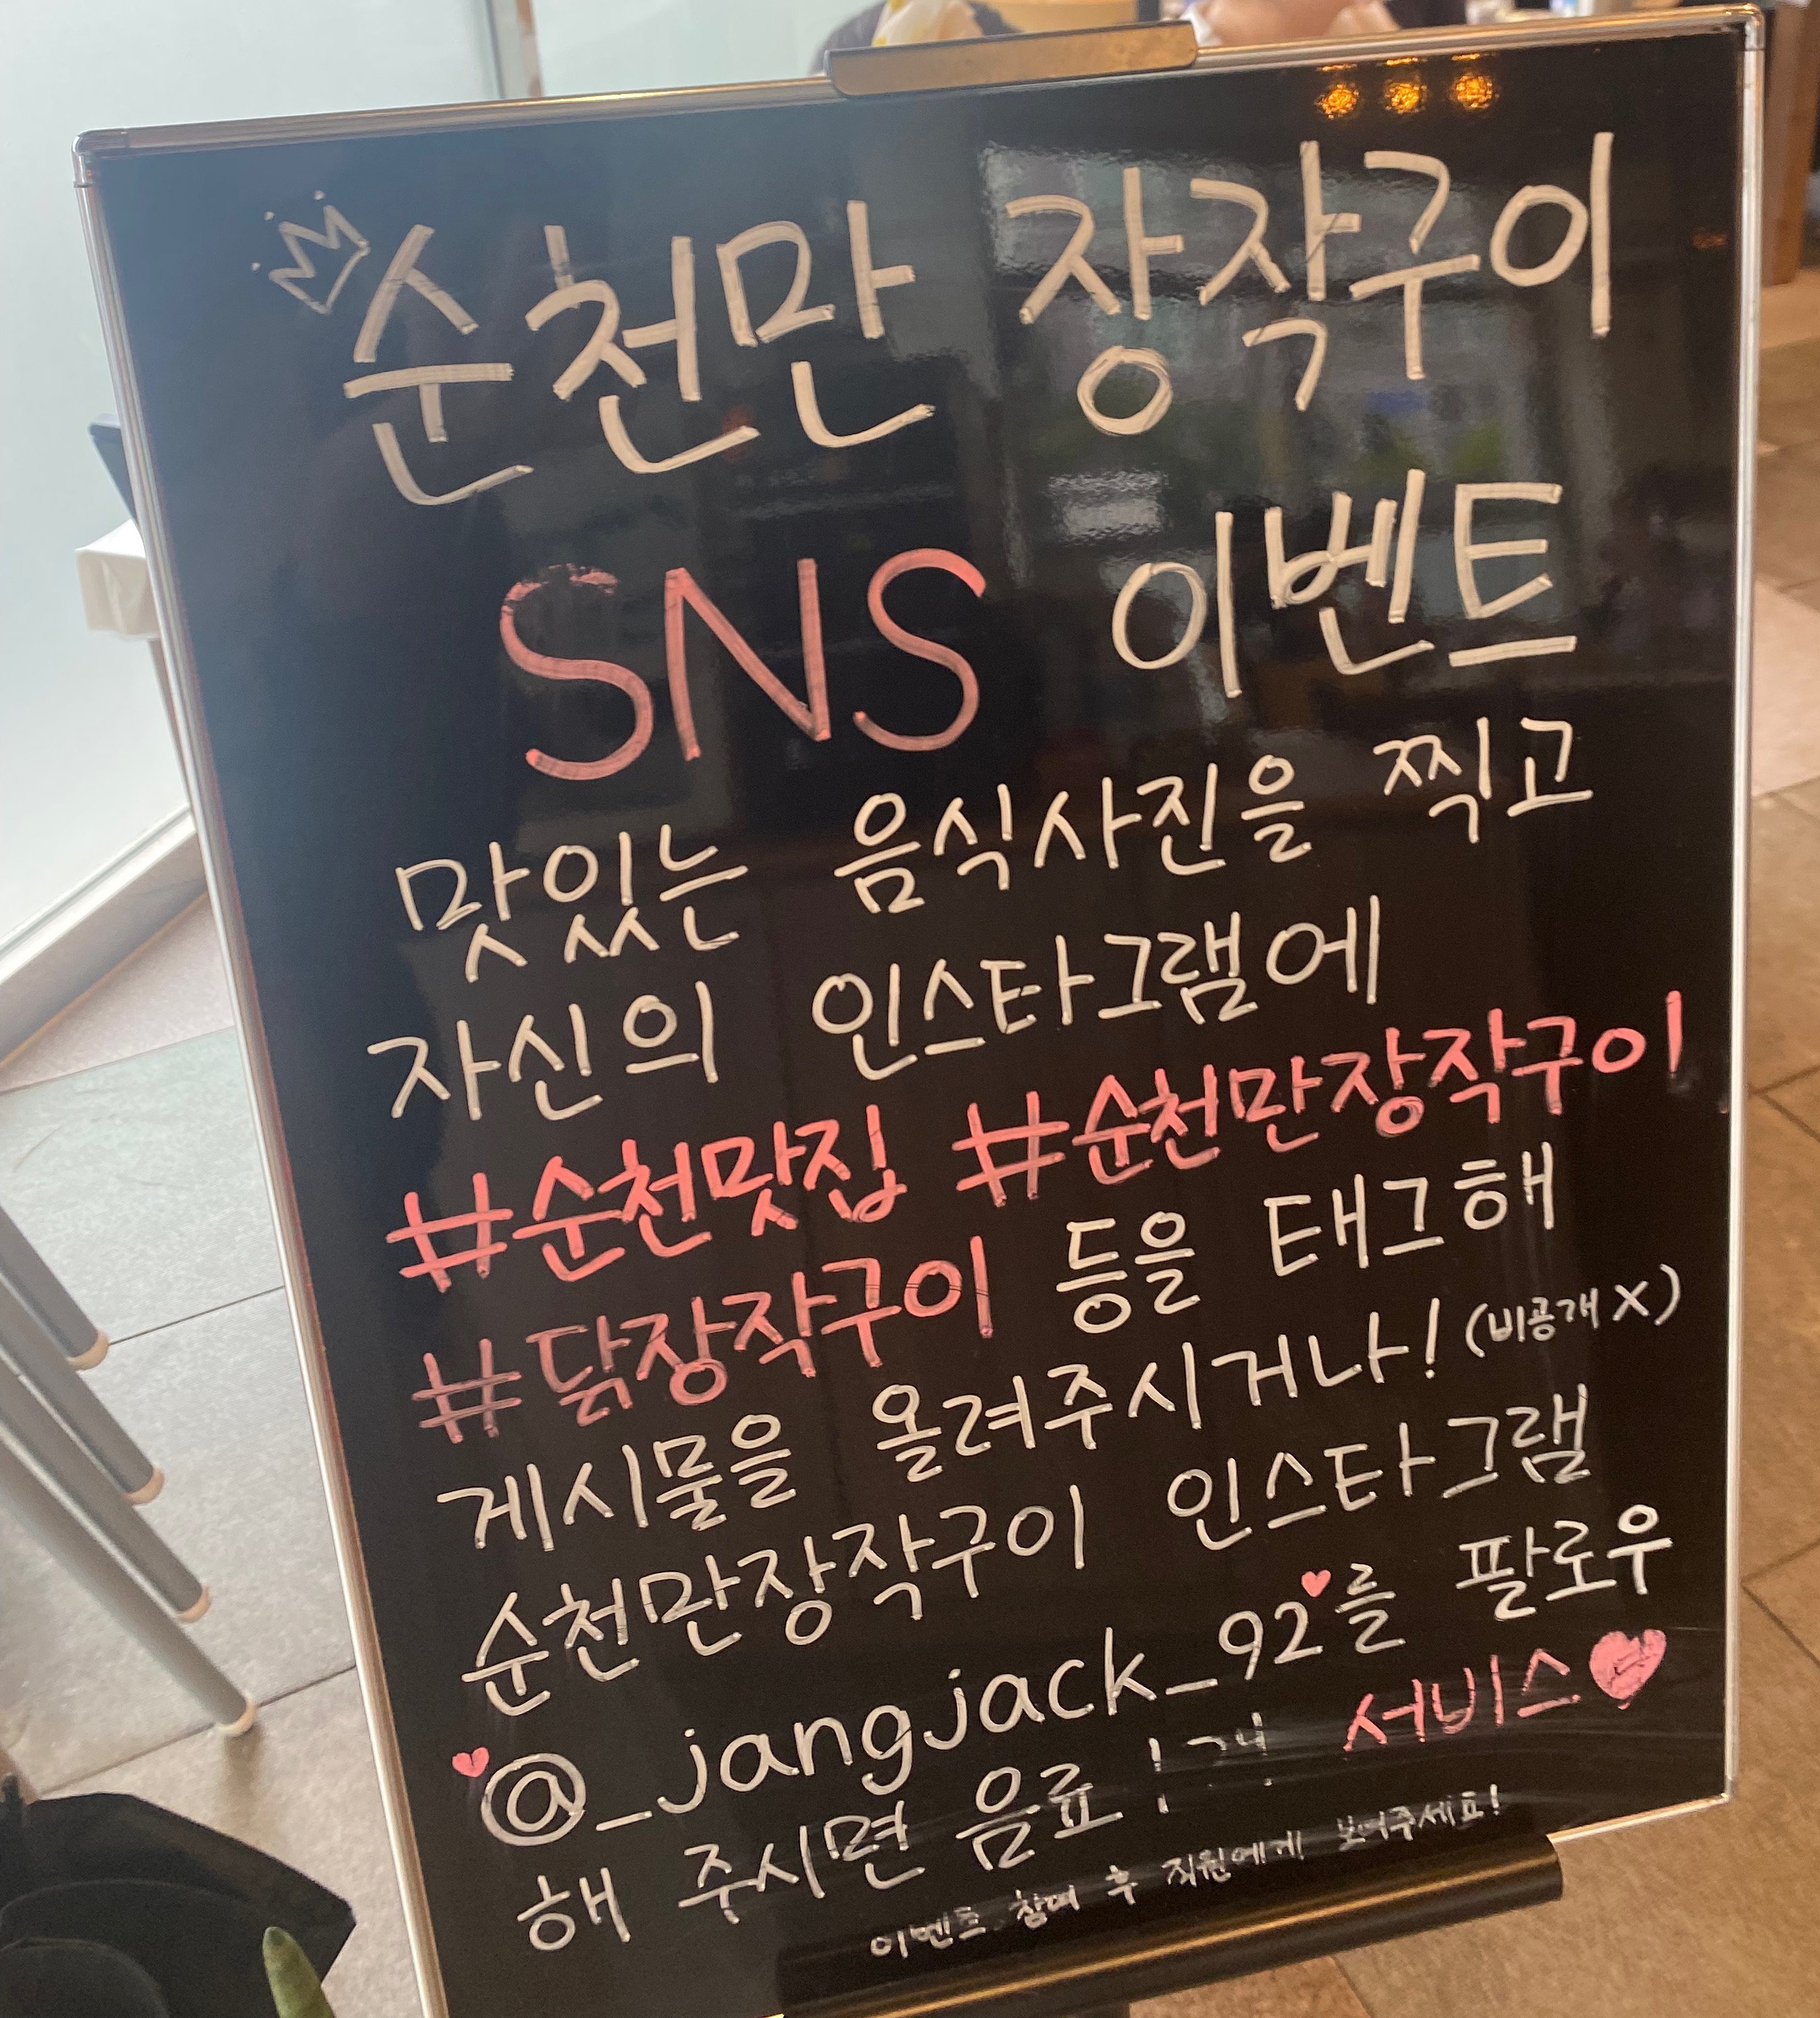 순천만 장작구이
SNS 이벤트
맛있는 음식사진을 찍고
자신의 인스타그램에
#순천맛집 #순천만장작구이
#닭장작구이 등을 태그해
게시물을 올려주시거나! (비공개 X)
순천만장작구이 인스타그램
@_jangjack_92를 팔로우
해 주시면 음료 1 서비스
이벤트 참여 후 직원에게 보여주세요!